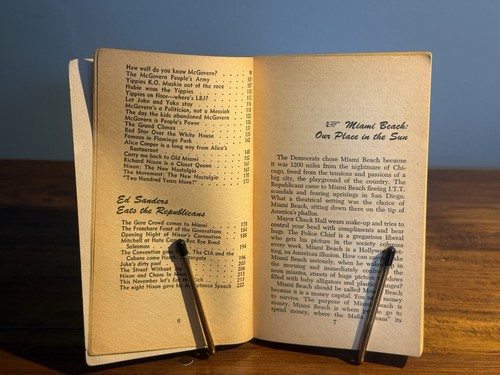 How well do you know McGovern?
The McGovern People's Army
Yippies K.O. Muskie out of the race
Hubie woos the Yippies
Yippies on floor—where's LBJ?
Let John and Yoko stay
McGovern's a Politician, not a Messiah
The day the kids abandoned McGovern
McGovern is People's Power
The Grand Climax
Red Star Over the White House
Famous in Flamingo Park
Alice Cooper is a long way from Alice's
Restaurant
Carry me back to Old Miami
Richard Nixon is a Closet Queen
Nixon: The New Nostalgia
The Movement: The New Nostalgia
"Two Hundred Years More?"
Ed Sanders
Eats the Republicans
The Gore Crowd comes to Miami 175
The Freemore Feast of the Generations 184
Opening Night of Nixon's Coronation 188
Mitchell at Hate Bye Bye Bond
Salesman 194
The Convention The CIA and the
Cubans come 196
John's dirty pool 203
The Street Without 206
Nixon and Chase 211
This November let's 215
The night Nixon gave his Acceptance Speech 222
6
☞ Miami Beach:
Our Place in the Sun
The Democrats chose Miami Beach because
it was 1200 miles from the nightmare of Chi-
cago, freed from the tensions and passions of a
big city, the playground of the country. The
Republicans came to Miami Beach fleeing I.T.T.
scandals and fearing uprisings in San Diego.
What a theatrical setting was the choice of
Miami Beach, sitting down there on the tip of
America's phallus.
Mayor Chuck Hall wears make-up and tries to
control your head with compliments and bear
hugs. The Police Chief is a gregarious liberal
who gets his picture in the society columns
every week. Miami Beach is a Hollywood
ing, an American illusion. How can you
Miami Beach seriously, when he wakes up in
the morning and immediately confronts
neon miasma, streets of huge
filled with baby alligators and plastic
Miami Beach should be called Money Beach
because it is a money capital. You need money
to survive. The purpose of Miami Beach is
money. Miami Beach is where people go to
spend money, where the Mafia "cleans" its
7